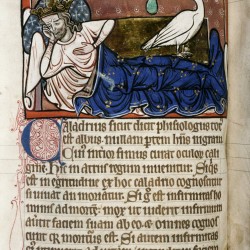 Caladrius sicut dicit phisiologus tot
est albus. nullam partem hns nigram.
Cui interior fimus curat oculor cali
gine. h in atriis regum inuenitur. Siqs
est in egritudine ex hoc caladrio cognoscitur
si uiuat an moriatur. Si g est infirmitas ho
minis ad morte. mox ut uiderit infirmum
auertit faciem suam ab eo et omnes cognos
cunt qr moriturus est. Si autem infirmitas